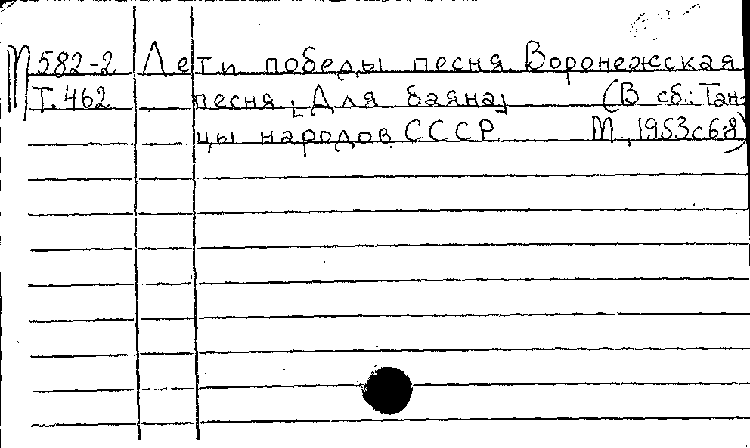 М 582-2 Лети победы песня Воронежская
Т. 462 песня [Для баяна] (В сб.: Тан-
цы народов СССР М., 1953 с 68)